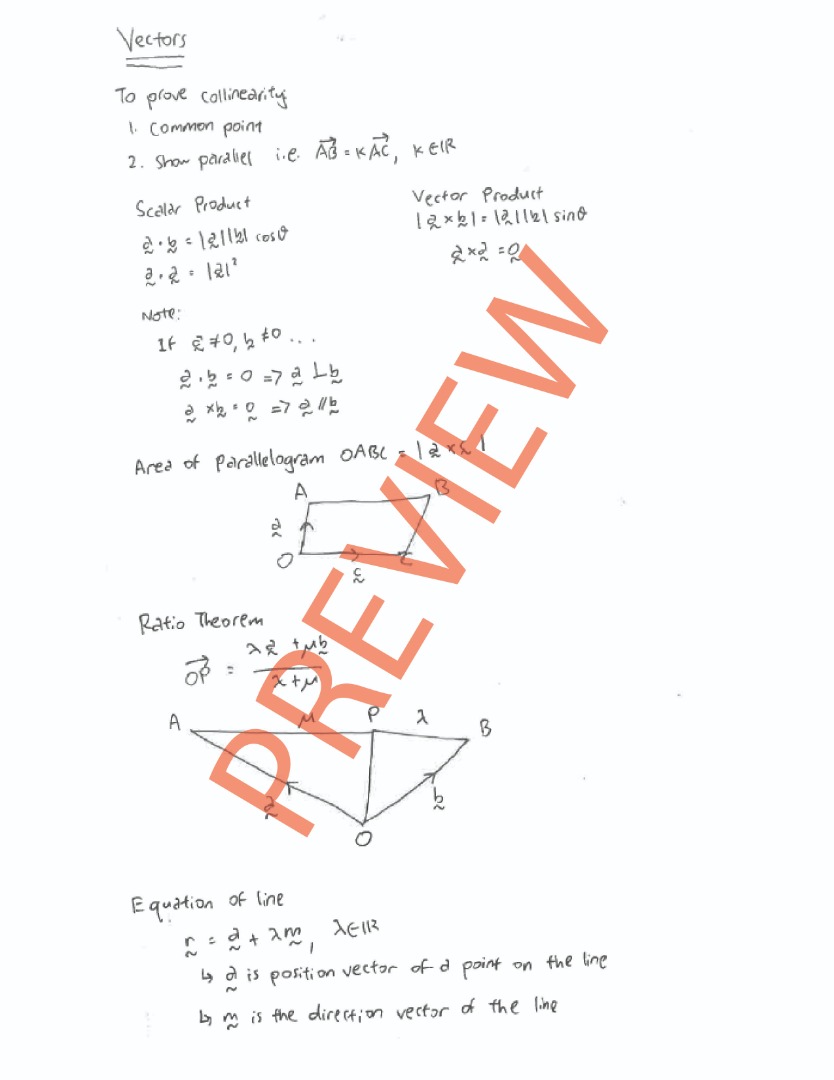 Vectors
To prove collinearity
1. Common point
2. Show parallel i.e. AB = kAC, k ∈ ℝ
Scalar Product
a · b = |a||b| cosθ
a · a = |a|²
Vector Product
|a × b| = |a||b| sinθ
a × a = 0
Note:
If a ≠ 0, b ≠ 0 ...
a · b = 0 => a ⊥ b
a × b = 0 => a // b
Area of Parallelogram OABC = |a × c|
A B
a
O C
c
Ratio Theorem
OP = (λa + μb) / (λ + μ)
A μ P λ B
a b
O
Equation of line
r = a + λm, λ ∈ ℝ
↳ a is position vector of a point on the line
↳ m is the direction vector of the line
PREVIEW